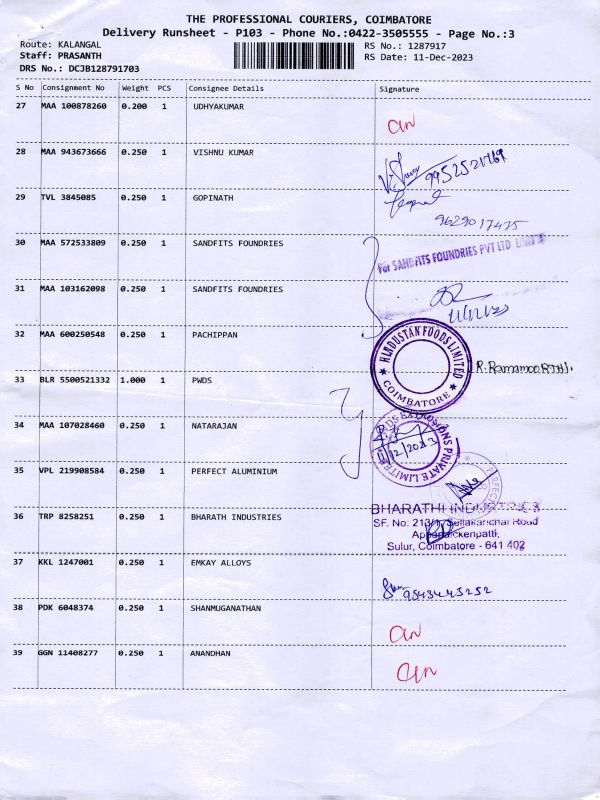 THE PROFESSIONAL COURIERS, COIMBATORE
Delivery Runsheet - P103 - Phone No.:0422-3505555 - Page No.:3
Route: KALANGAL
RS No.: 1287917
Staff: PRASANTH
RS Date: 11-Dec-2023
DRS No.: DCJB128791703
S No Consignment No Weight PCS Consignee Details Signature
27 MAA 100878260 0.200 1 UDHYAKUMAR
28 MAA 943673666 0.250 1 VISHNU KUMAR
29 TVL 3845085 0.250 1 GOPINATH
9629017475
30 MAA 572533809 0.250 1 SANDFITS FOUNDRIES
For SANDFITS FOUNDRIES PVT LTD
31 MAA 103162098 0.250 1 SANDFITS FOUNDRIES
32 MAA 600250548 0.250 1 PACHIPPAN
HINDUSTAN FOODS LIMITED
COIMBATORE
33 BLR 5500521332 1.000 1 PWDS
34 MAA 107028460 0.250 1 NATARAJAN
PRIVATE LIMITED
35 VPL 219908584 0.250 1 PERFECT ALUMINIUM
36 TRP 8258251 0.250 1 BHARATH INDUSTRIES
BHARATHI INDUSTRIES
SF. No: 213/1, Sellakarichal Road
Sulur, Coimbatore - 641 402
37 KKL 1247001 0.250 1 EMKAY ALLOYS
9543445252
38 PDK 6048374 0.250 1 SHANMUGANATHAN
39 GGN 11408277 0.250 1 ANANDHAN